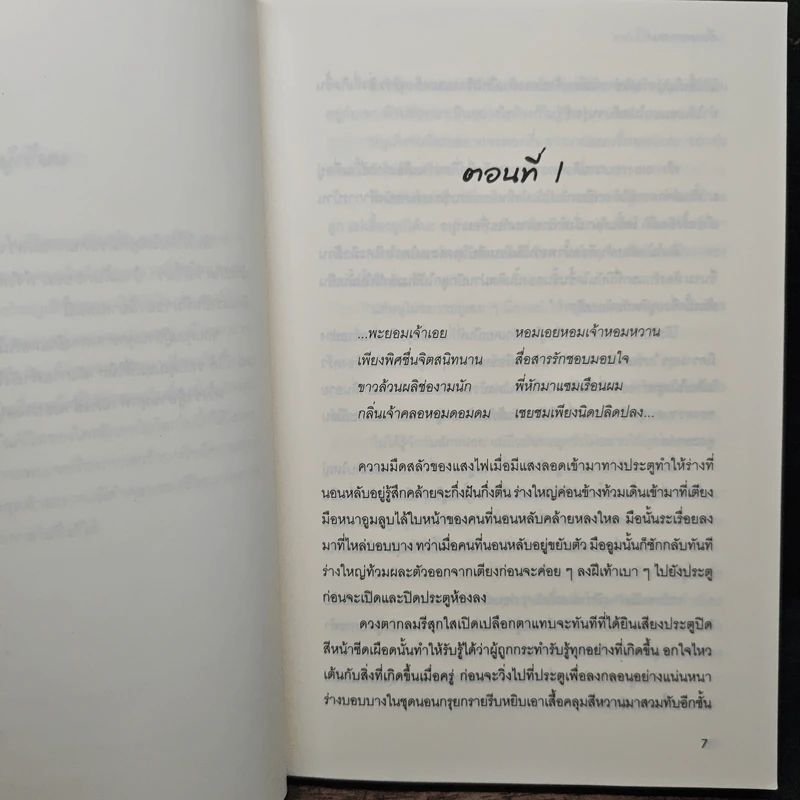 ตอนที่ 1
...พะยอมเจ้าเอย หอมเอยหอมเจ้าหอมหวาน
เพียงพิศชื่นจิตสนิทนาน สื่อสารรักชอบมอบใจ
ขาวล้วนผลิช่องามนัก พี่หักมาแซมเรือนผม
กลิ่นเจ้าคลอหอมดอมดม เชยชมเพียงนิดปลิดปลง...
ความมืดสลัวของแสงไฟเมื่อมีแสงลอดเข้ามาทางประตูทำให้ร่างที่
นอนหลับอยู่รู้สึกคล้ายจะกึ่งฝันกึ่งตื่น ร่างใหญ่ค่อนข้างท้วมเดินเข้ามาที่เตียง
มือหนาอูมลูบไล้ใบหน้าของคนที่นอนหลับคล้ายหลงใหล มือนั้นระเรื่อยลง
มาที่ไหล่บอบบาง ทว่าเมื่อคนที่นอนหลับอยู่ขยับตัว มืออูมนั้นก็ชักกลับทันที
ร่างใหญ่ท้วมผละตัวออกจากเตียงก่อนจะค่อย ๆ ลงฝีเท้าเบา ๆ ไปยังประตู
ก่อนจะเปิดและปิดประตูห้องลง
ดวงตากลมรีสุกใสเปิดเปลือกตาแทบจะทันทีที่ได้ยินเสียงประตูปิด
สีหน้าซีดเผือดนั้นทำให้รับรู้ได้ว่าผู้ถูกกระทำรับรู้ทุกอย่างที่เกิดขึ้น อกใจไหว
เต้นกับสิ่งที่เกิดขึ้นเมื่อครู่ ก่อนจะวิ่งไปที่ประตูเพื่อลงกลอนอย่างแน่นหนา
ร่างบอบบางในชุดนอนกรุยกรายรีบหยิบเอาเสื้อคลุมสีหวานมาสวมทับอีกชั้น
7